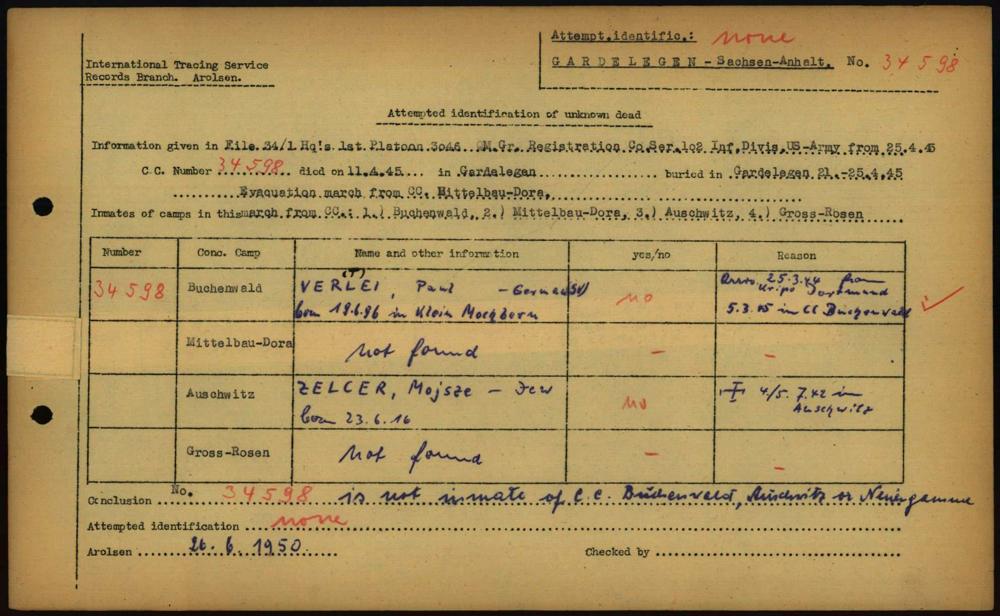 Attempt.identific.: none
International Tracing Service
GARDELEGEN - Sachsen-Anhalt. No. 34598
Records Branch. Arolsen.
Attempted identification of unknown dead
Information given in File 34/1 Hq's 1st Platoon 3046 QM.Gr. Registration Co.Ser.102 Inf.Divis.US-Army from 25.4.45
C.C. Number 34598 died on 11.4.45 in Gardelegen buried in Gardelegen 21.-25.4.45
Evacuation march from CC. Mittelbau-Dora,
Inmates of camps in this march from CC.: 1.) Buchenwald, 2.) Mittelbau-Dora, 3.) Auschwitz, 4.) Gross-Rosen
Number Conc. Camp Name and other information yes/no Reason
34598 Buchenwald VERLEI (T), Paul - German no 25.3.44 from
Kripo Dortmund
born 19.6.96 in Klein 5.3.45 in CC Buchenwald
Mittelbau-Dora not found - -
Auschwitz ZELCER, Mojsze - Jew no 4/5.7.42 in
born 23.6.16 Auschwitz
Gross-Rosen not found - -
Conclusion No. 34598 is not inmate of C.C. Buchenwald, Auschwitz or Neuengamme
Attempted identification none
Arolsen 26.6.1950. Checked by